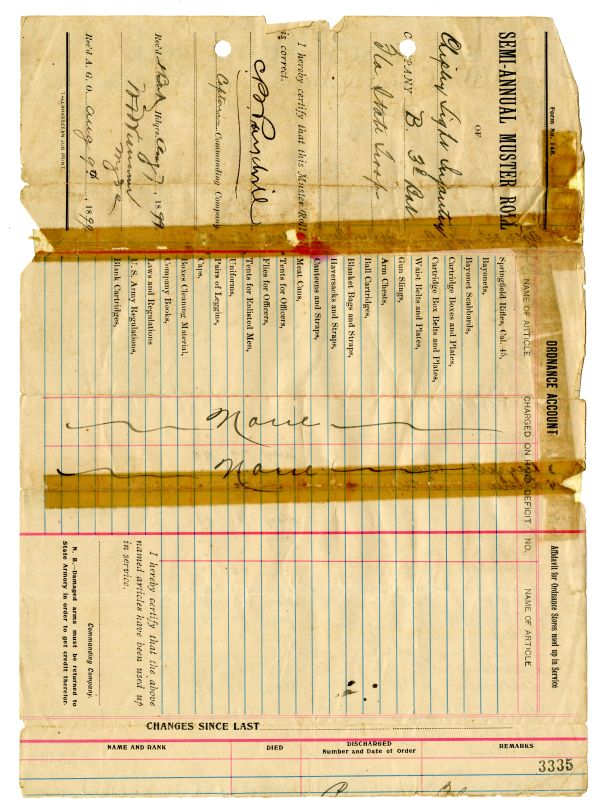 Form No. 148
SEMI-ANNUAL MUSTER ROLL
OF
Chipley Light Infantry
COMPANY B 3d Bat
Fla State Troops
I hereby certify that this Muster Roll
is correct.
Captain Commanding Company.
Rec'd Hdqrs. Aug 7 1899
Rec'd A. G. O. Aug 9th, 1899
TALLAHASSEEAN JOB PRINT.
ORDNANCE ACCOUNT
NAME OF ARTICLE
CHARGED
ON HAND
DEFICIT
Springfield Rifles, Cal. 45,
Bayonets,
Bayonet Scabbards,
Cartridge Boxes and Plates,
Cartridge Box Belts and Plates,
Waist Belts and Plates,
Gun Slings,
Arm Chests,
Ball Cartridges,
Blanket Bags and Straps,
Haversacks and Straps,
Canteens and Straps,
Meat Cans,
Tents for Officers,
Flies for Officers,
Tents for Enlisted Men,
Uniforms,
Pairs of Leggins,
Caps,
Boxes Cleaning Material,
Company Books,
Laws and Regulations
U. S. Army Regulations,
Blank Cartridges,
None
None
Affidavit for Ordnance Stores used up in Service
NO.
NAME OF ARTICLE
I hereby certify that the above
named articles have been used up
in service.
Commanding Company.
N. B.—Damaged arms must be returned to
State Armory in order to get credit therefor.
CHANGES SINCE LAST
NAME AND RANK
DIED
DISCHARGED
Number and Date of Order
REMARKS
3335